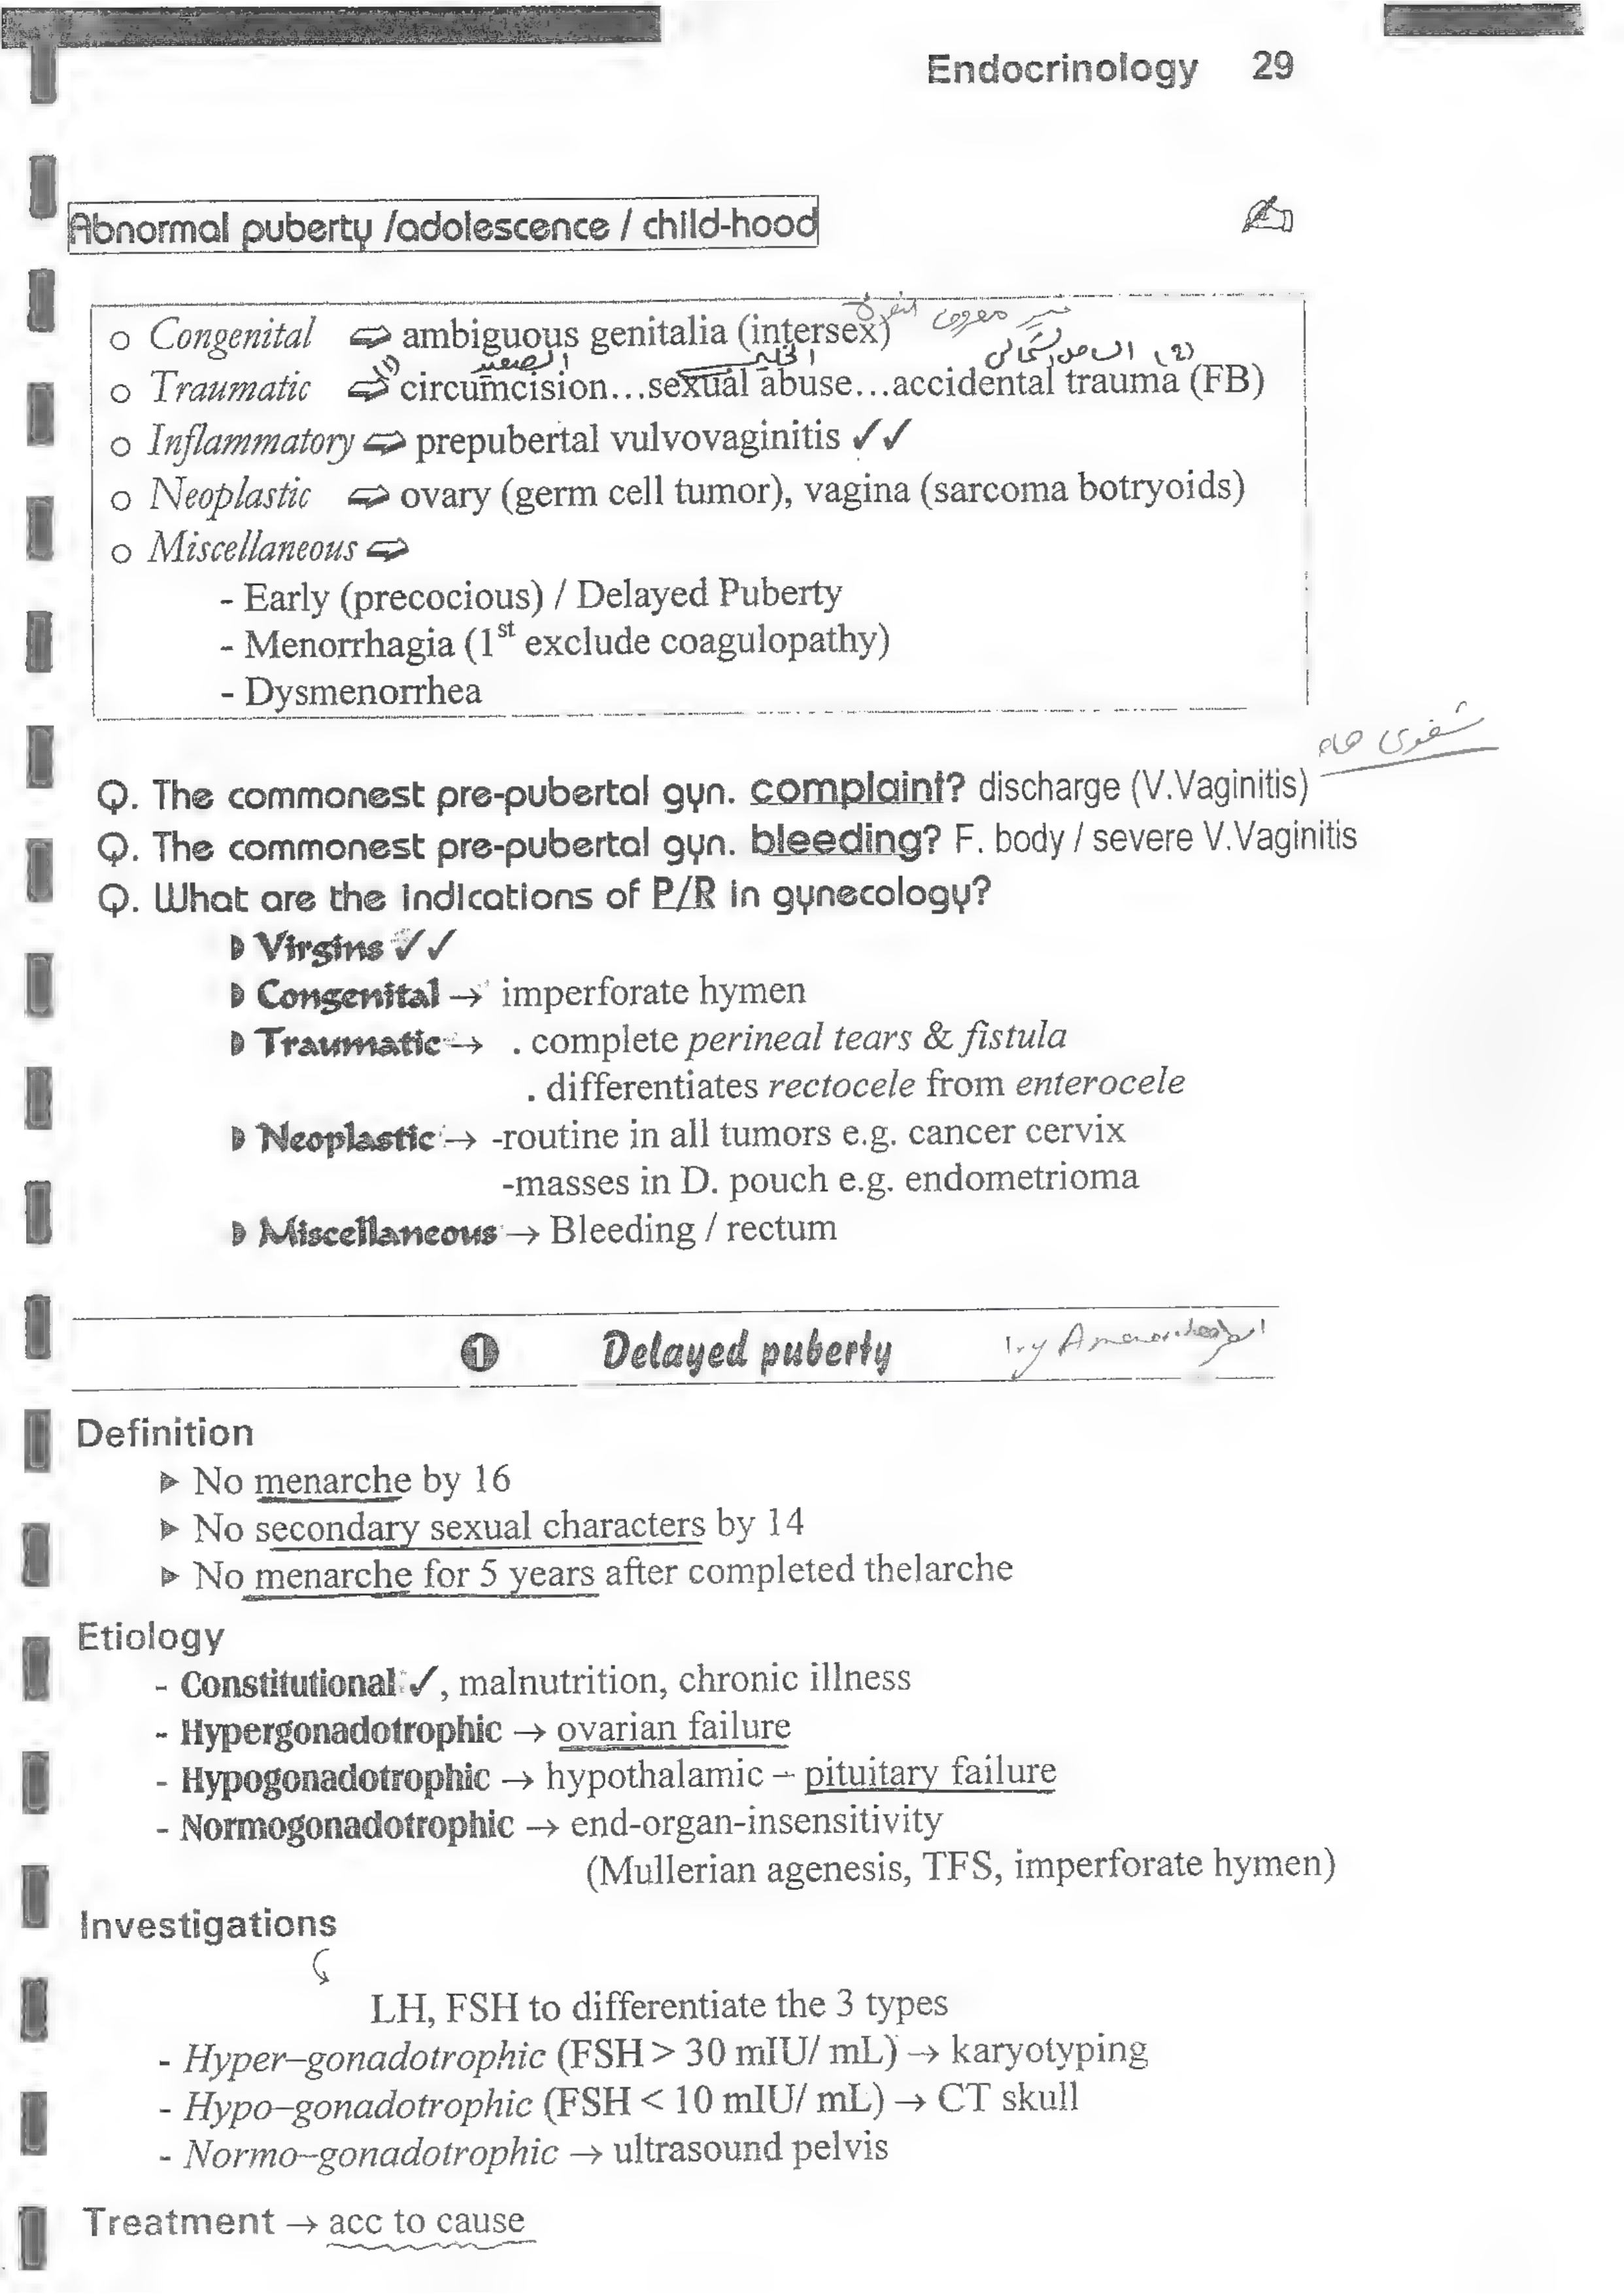 Endocrinology 29
Abnormal puberty /adolescence / child-hood
غير معروف النوع
o Congenital ⇨ ambiguous genitalia (intersex)
(1) الصعيد
(2)
o Traumatic ⇨ circumcision...sexual abuse...accidental trauma (FB)
o Inflammatory ⇨ prepubertal vulvovaginitis ✓✓
o Neoplastic ⇨ ovary (germ cell tumor), vagina (sarcoma botryoids)
o Miscellaneous ⇨
- Early (precocious) / Delayed Puberty
- Menorrhagia (1st exclude coagulopathy)
- Dysmenorrhea
شفوى هام
Q. The commonest pre-pubertal gyn. complaint? discharge (V.Vaginitis)
Q. The commonest pre-pubertal gyn. bleeding? F. body / severe V.Vaginitis
Q. What are the indications of P/R in gynecology?
Virgins ✓✓
Congenital → imperforate hymen
Traumatic → . complete perineal tears & fistula
. differentiates rectocele from enterocele
Neoplastic → -routine in all tumors e.g. cancer cervix
-masses in D. pouch e.g. endometrioma
Miscellaneous → Bleeding / rectum
1 Delayed puberty 1ry Amenorrhea
Definition
▶ No menarche by 16
▶ No secondary sexual characters by 14
▶ No menarche for 5 years after completed thelarche
Etiology
- Constitutional ✓, malnutrition, chronic illness
- Hypergonadotrophic → ovarian failure
- Hypogonadotrophic → hypothalamic – pituitary failure
- Normogonadotrophic → end-organ-insensitivity
(Mullerian agenesis, TFS, imperforate hymen)
Investigations
LH, FSH to differentiate the 3 types
- Hyper–gonadotrophic (FSH > 30 mIU/ mL) → karyotyping
- Hypo–gonadotrophic (FSH < 10 mIU/ mL) → CT skull
- Normo–gonadotrophic → ultrasound pelvis
Treatment → acc to cause